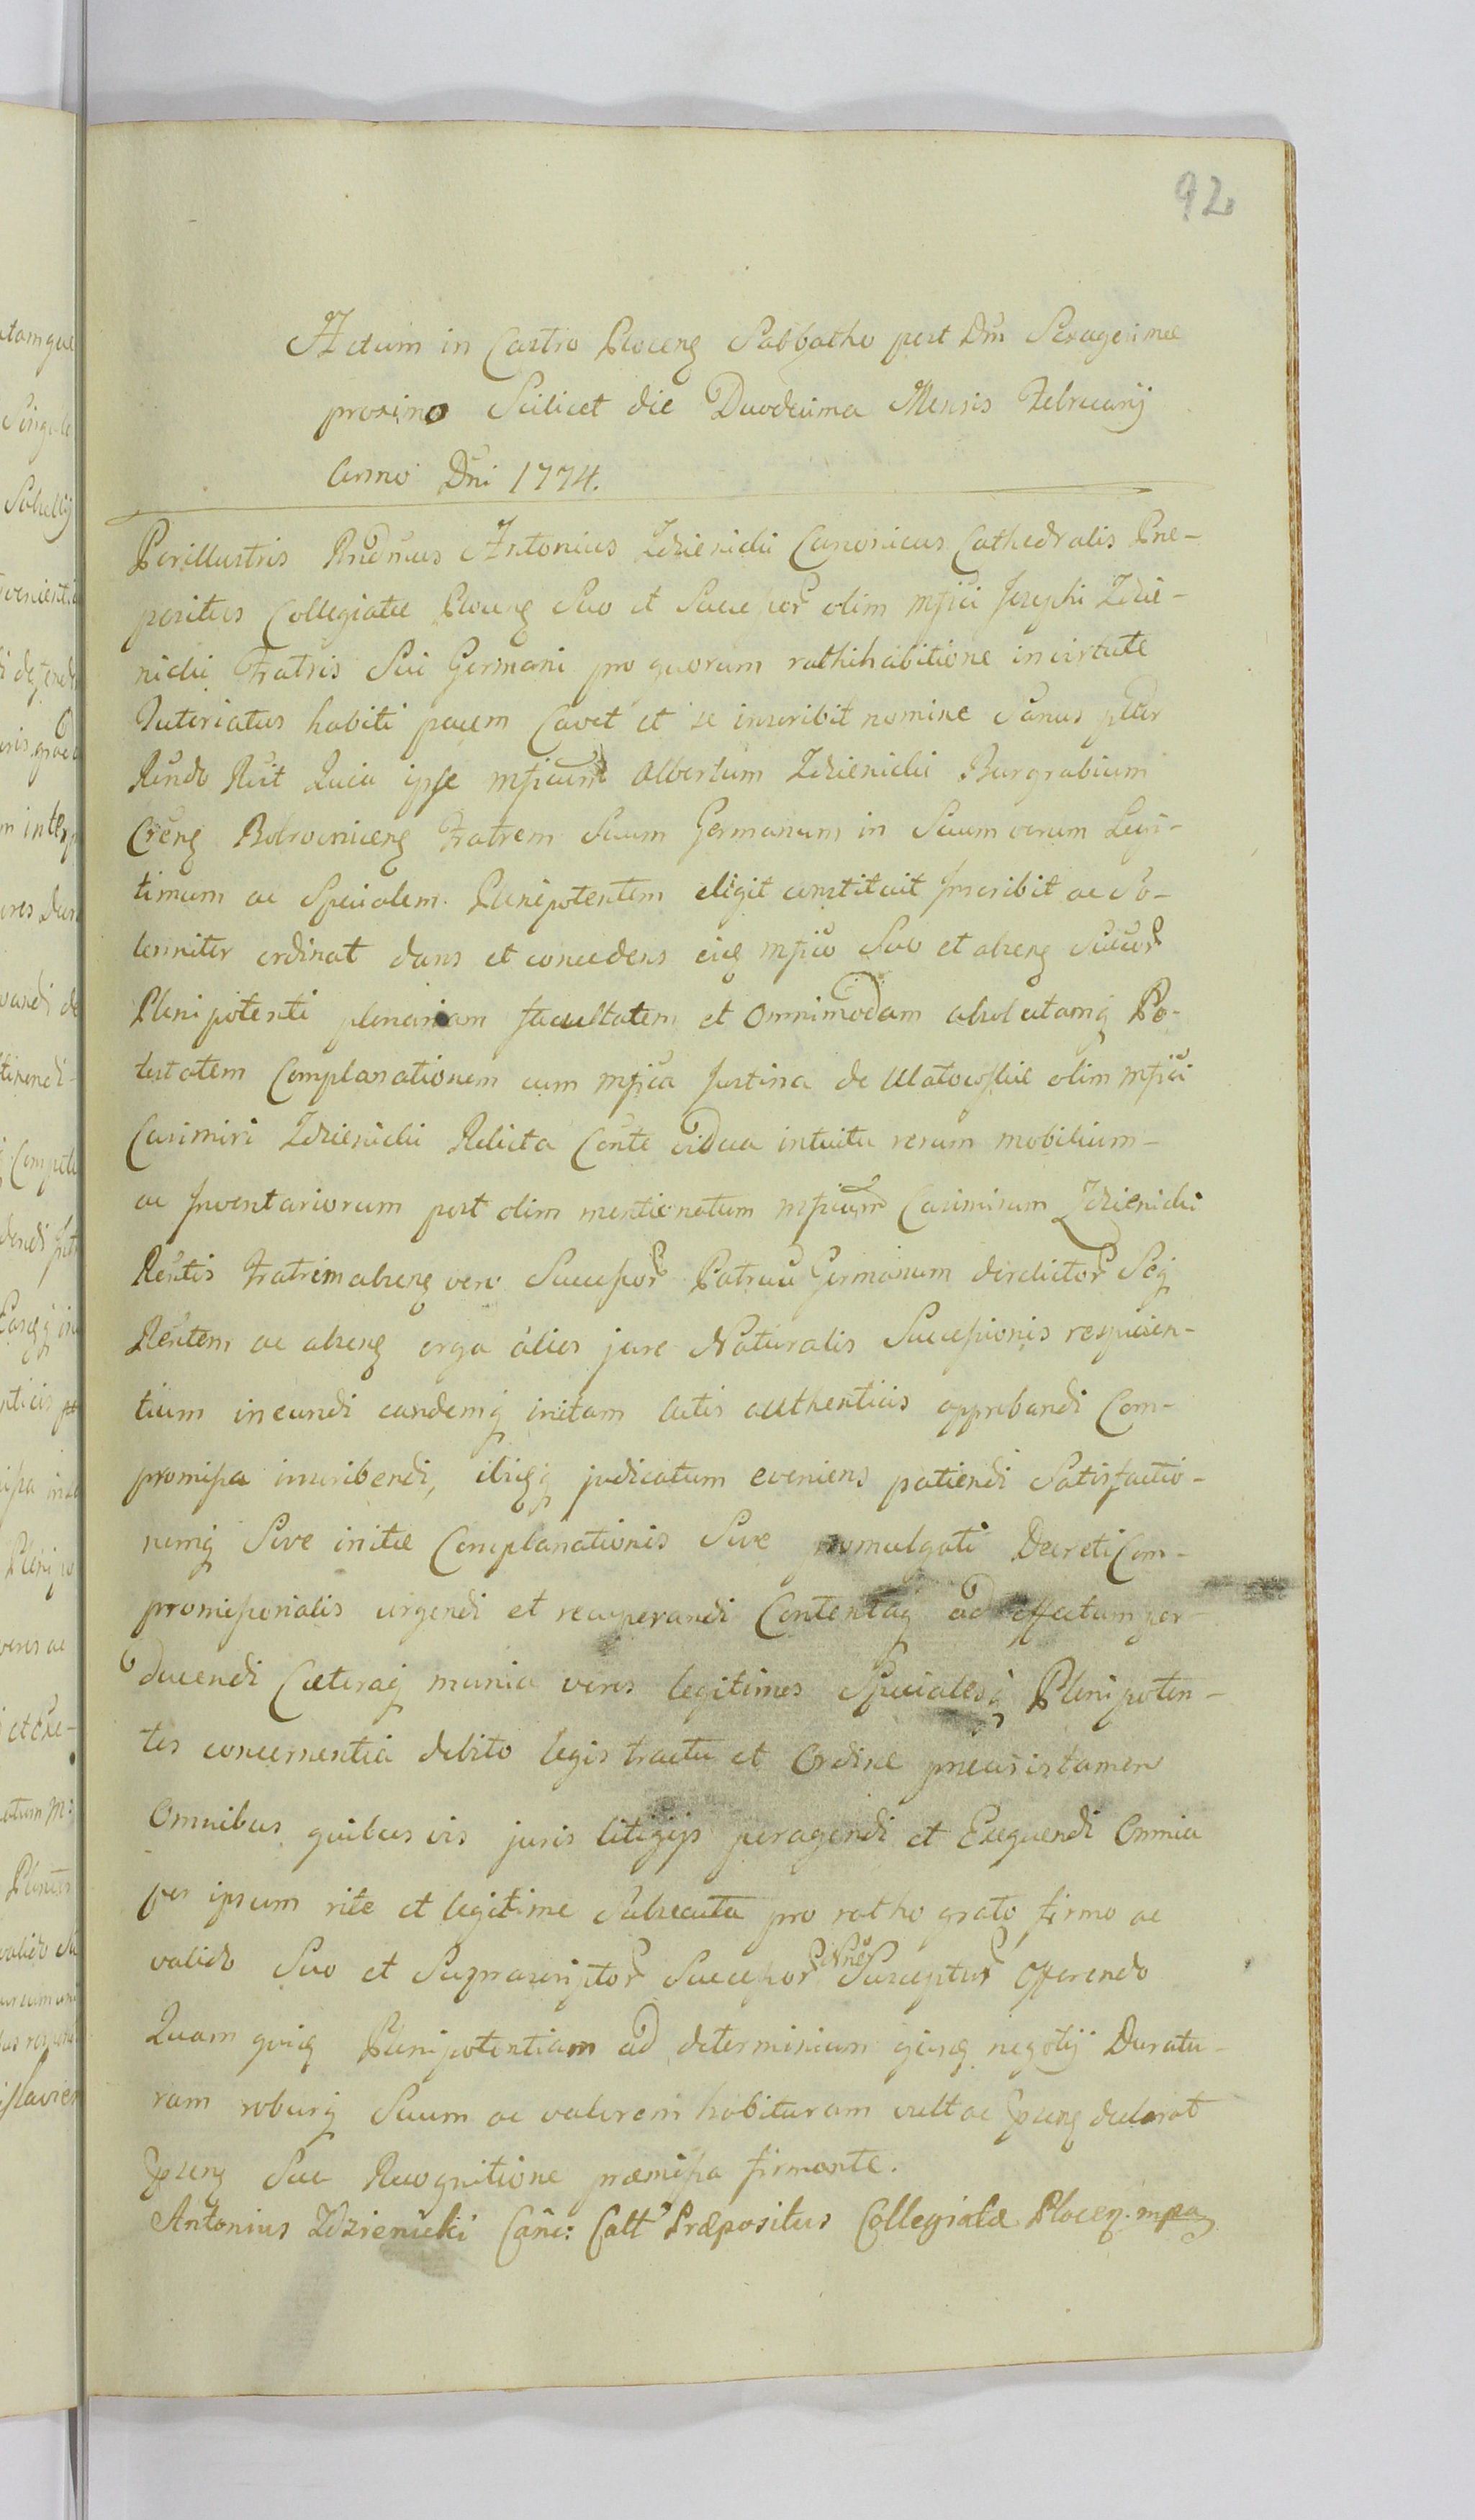 92
Actum in Castro Plocen̄ Sabbatho post Dn̄i Sexagesimae
proximo Scilicet die Duodecima Mensis Februarij
Anno Dn̄i 1774.
Perillustris Rn̄dmus Antonius Zdzienicki Canonicus Cathedralis Prae-
positus Collegiatae Plocen̄ Suo et Successor̄ olim mfici Josephi Zdzie-
nicki Fratris Sui Germani pro quorum rathihabitione in virtute
Tutoriatus habiti pacem Cavet et se inscribit nomine Sanus
Quia ipse mficum Albertum Zdzienicki Burgrabium
Cr̄en̄ Bobrovnicen̄ Fratrem Suum Germanum in Suum verum Legi-
timum ac Specialem Plenipotentem eligit constituit Inscribit ac So-
lenniter ordinat dans et concedens eidē mfico Suo et absen̄ Succor̄
Plenipotenti plenariam facultatem et Omnimodam absolutamq̄ Po-
testatem Complanationem cum mfica Justina de olim mfici
Casimiri Zdzienicki Relicta Con̄te vidua intuitu rerum mobilium-
ac Inventariorum post olim mentionatum mficum Casimirum Zdzienicki
Ren̄tis Fratrem absen̄ vero Successor̄ Patruū Germanum derelictor̄ Sēq
Ren̄tem ac absen̄ erga alios jure Naturalis Successionis respicien-
tium ineundi eandemq̄ initam Actis authenticis approbandi Com-
promissa inscribendi, ibidēq̄ judicatum eveniens patiendi Satisfactio-
nemq̄ Sive initae Complanationis Sive promulgati Decreti Com-
promissorialis urgendi et recuperandi Contentaq̄ ad effectum per-
ducendi Caeteraq̄ munia veros legitimos Specialesq̄ Plenipoten-
tes concernentia debito legis tractu et Ordine praecisis tamen
Omnibus quibusvis juris litigijs peragendi et Exequendi Omnia
per ipsum rite et legitime Subsecuta pro ratho grato firmo ac
valido Suo et Suprascriptor̄ Successor̄ Nn̄e Susceptur̄ Offerendo
Quam quidē Plenipotentiam ad determinium ejusdē negotij Duratu-
ram roburq̄ Suum ac valorem habituram vult ac p̄sen̄ declarat
p̄sen̄ Sue Recognitione praemissa firmante.
Antonius Zdzienicki Can̄: Catt Praepositus Collegiatae Plocen̄. mpa